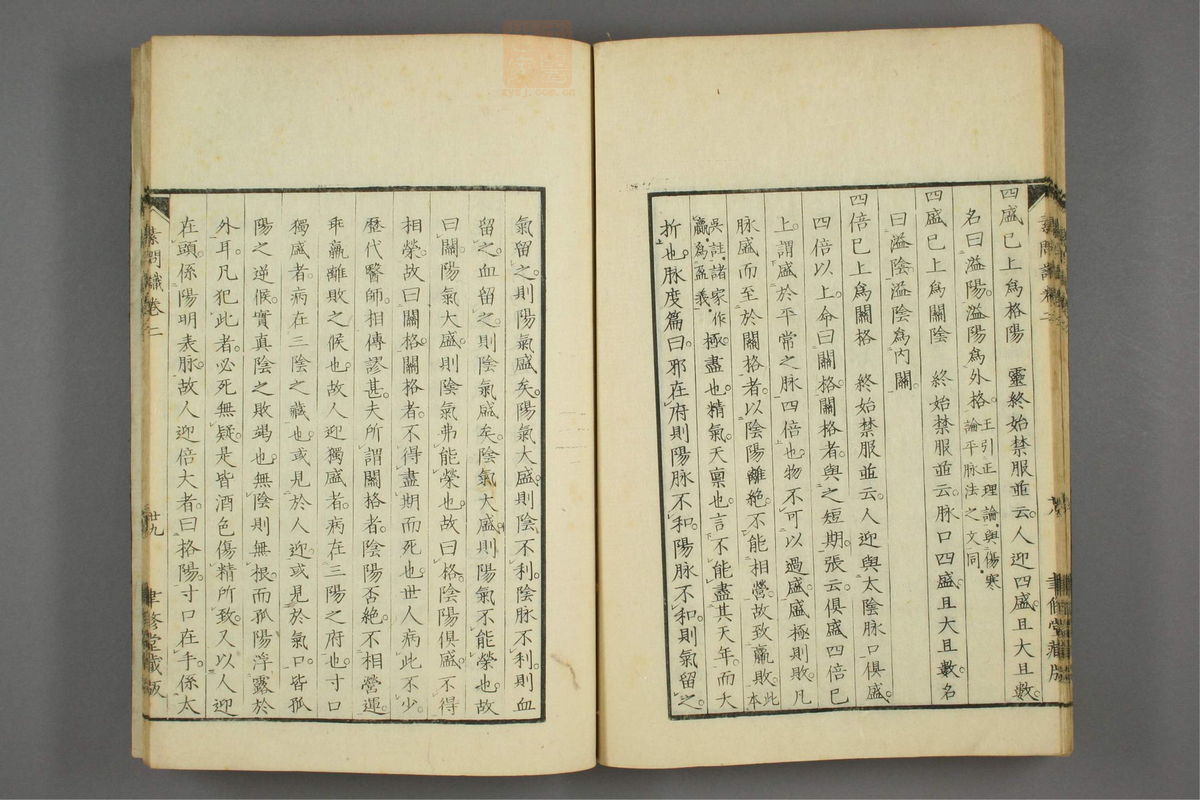 四盛已上爲格陽　靈終始禁服並云人迎四盛且大且數
名曰溢陽溢陽爲外格王引正理論與傷寒論平脉法之文同
四盛已上爲關陰　終始禁服並云脉口四盛且大且數名
曰溢陰溢陰爲内關
四倍已上爲關格　終始禁服並云人迎與太陰脉口俱盛
四倍以上命曰關格關格者與之短期張云俱盛四倍已
上謂盛於平常之脉四倍也物不可以過盛盛極則敗凡
脉盛而至於關格者以陰陽離絶不能相營故致羸敗此本
吳註諸家作羸爲盈義極盡也精氣天禀也言不能盡其天年而大
折也脉度篇曰邪在府則陽脉不和陽脉不和則氣留之
氣留之則陽氣盛矣陽氣大盛則陰不利陰脉不利則血
留之血留之則陰氣盛矣陰氣大盛則陽氣不能榮也故
曰關陽氣大盛則陰氣弗能榮也故曰格陰陽俱盛不得
相榮故曰關格關格者不得盡期而死也世人病此不少
歴代醫師相傳謬甚夫所謂關格者陰陽否絶不相營運
乖羸離敗之候也故人迎獨盛者病在三陽之府也寸口
獨盛者病在三陰之藏也或見於人迎或見於氣口皆孤
陽之逆候實真陰之敗竭也無陰則無根而孤陽浮露於
外耳凡犯此者必死無疑是皆酒色傷精所致又以人迎
在頭係陽明表脉故人迎倍大者曰格陽寸口在手係太
素問識卷二
廿九
聿修堂藏版